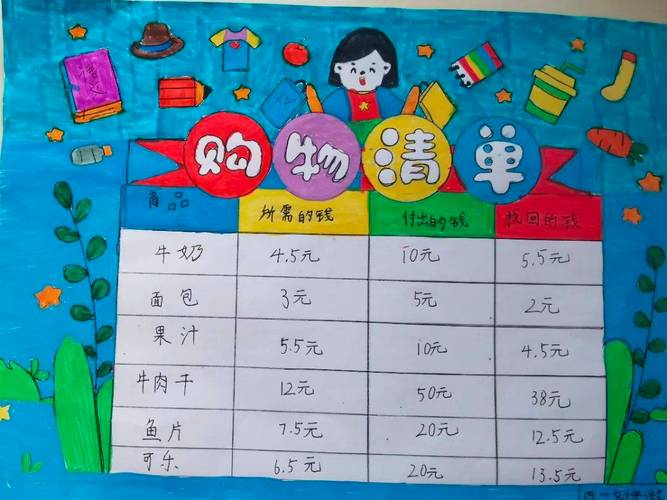 购物清单
商品 所需的钱 付出的钱 找回的钱
牛奶 4.5元 10元 5.5元
面包 3元 5元 2元
果汁 5.5元 10元 4.5元
牛肉干 12元 50元 38元
鱼片 7.5元 20元 12.5元
可乐 6.5元 20元 13.5元